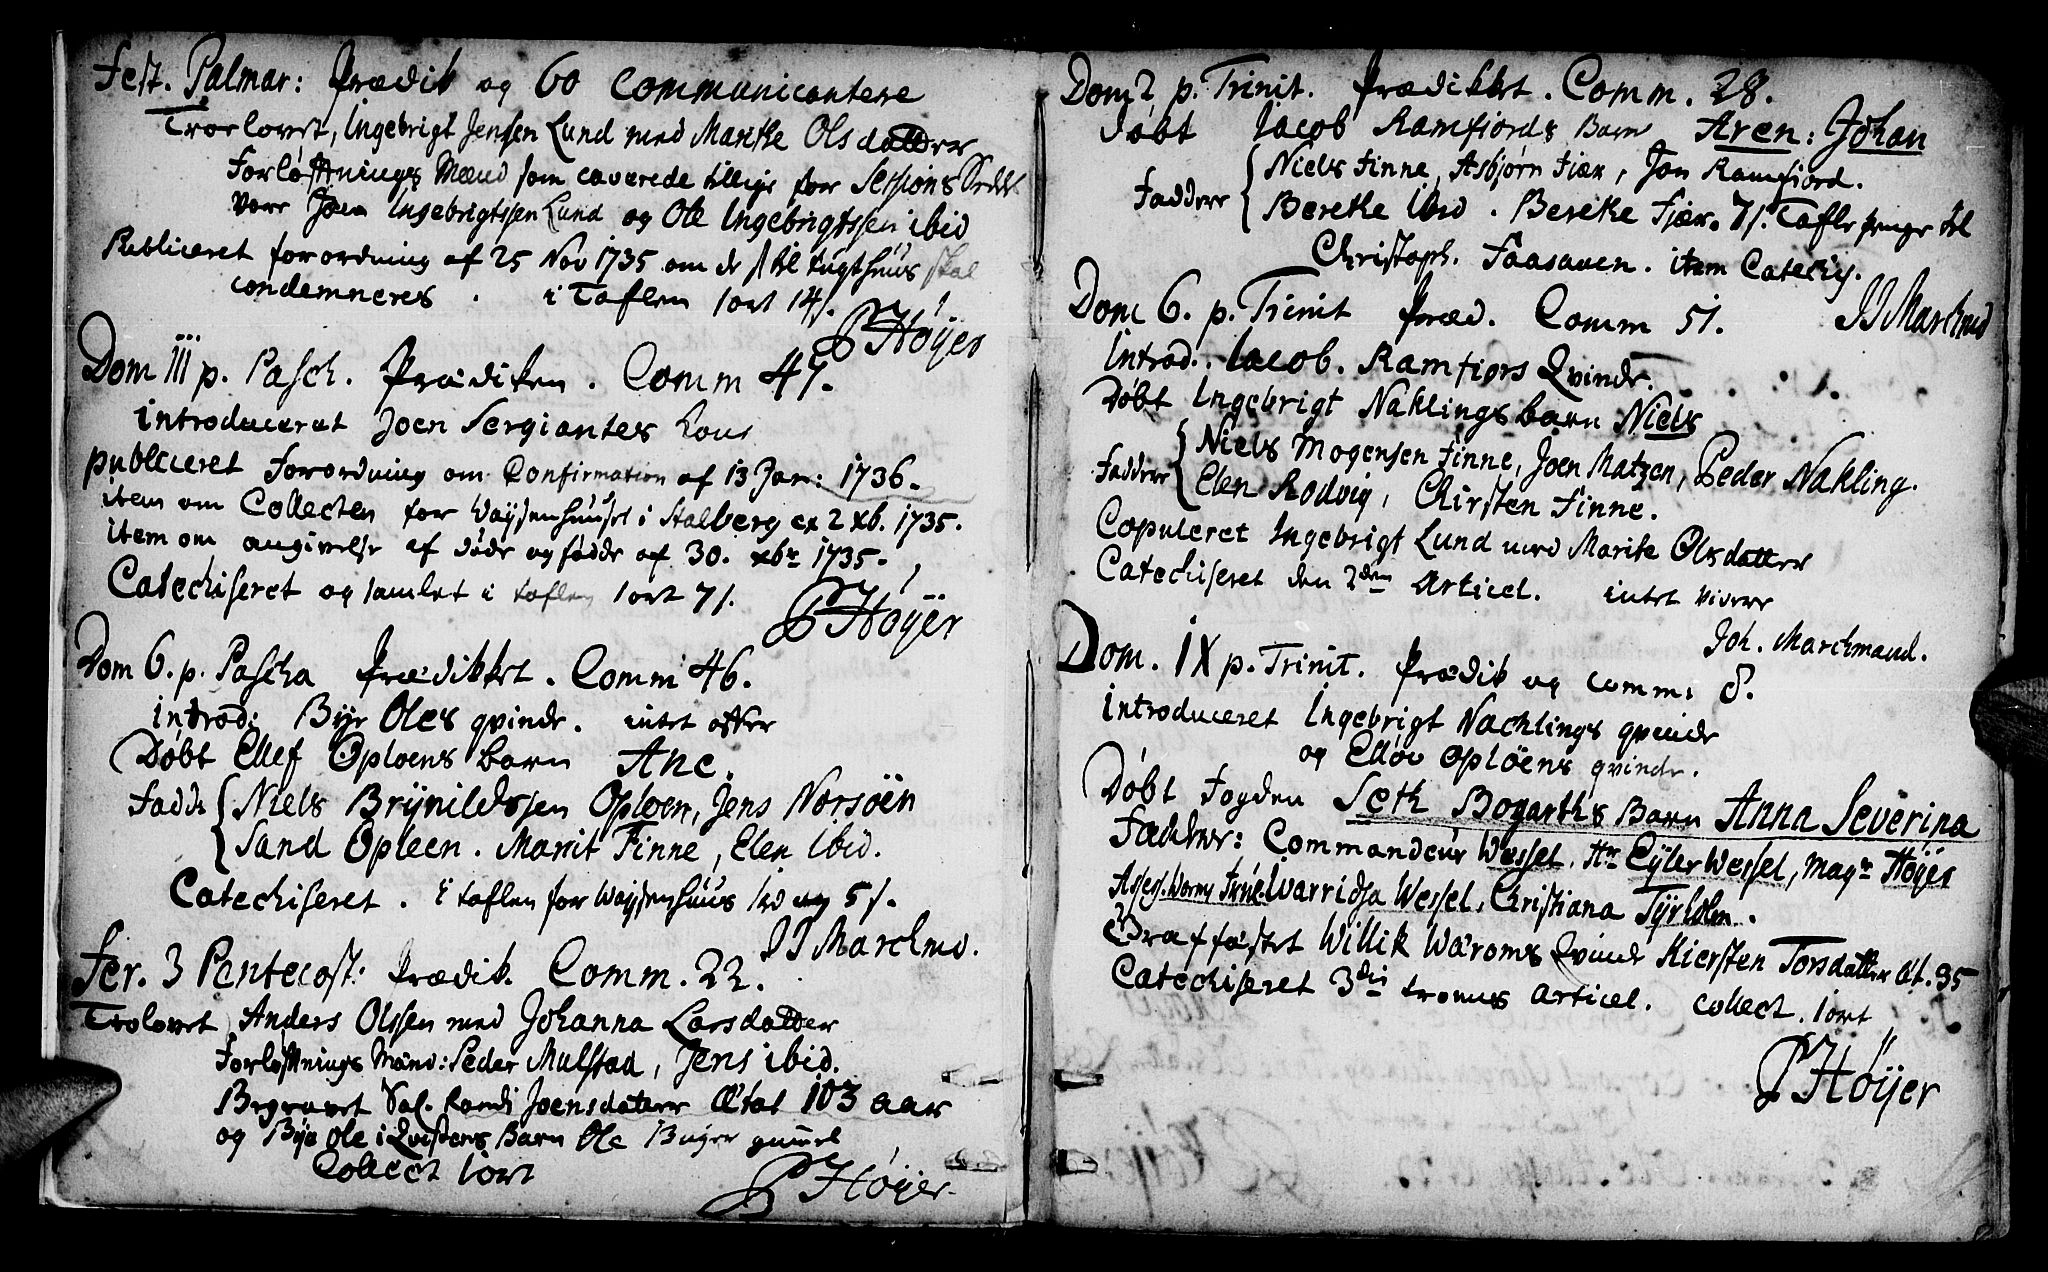 Fest. Palmar: Prædik og 60 Communicantere
Troelovet, Ingebrigt Jensen Lund med Maritke Olsdatter
Forløftnings Mænd som caverede tillige for Sessions
Vare Joen Ingebrigtssen Lund og Ole Ingebrigtssen ibid
Publiceret forordning af 25 Nov 1735 om de til tugthuus skal
condemneres . i Taflen 1 ort 14/.
P Høyer
Dom III p. Pasch. Prædiken . Comm 47.
introduceret Joen Sergiantes Kone
publiceret Forordning om Confirmation af 13 Jan: 1736.
item om Collecten for Waysenhuuset i Stalberg ex 2 xb. 1735.
item om angivelse af døde og fødde af 30. xbr 1735.
Catechiseret og samlet i taflen 1 ort 7/.
P Høyer
Dom 6. p. Pascha Prædikket . Comm 46.
introd: Bye Oles qvinde. intet offer
Døbt Ellef Oploens barn Ane.
Fadde Niels Brynildssen Oploen, Jens Norsöen
Sand Oploen . Marit Finne, Elen ibid.
Catechiseret . i taflen for Waysenhuus 5/.
JJ Marchmd.
Fer. 3 Pentecost: Prædik. Comm. 22.
Trolovet Anders Olssen med Johanna Larsdatter
Forløftnings Mænd: Peder Mulstad, Jens ibid.
Begravet Sal. Randi Joensdatter Ætat 103 aar
og Bye Ole i Qvistens Barn Ole
Collect 1 ort
P Høyer.
Dom 2 p. Trinit. Prædikket . Comm. 28.
Døbt Jacob Ramfjords Barn Aren: Johan
Faddere Niels Finne, Asbjørn Fiær, Jon Ramfiord.
Beretke ibid . Beretke Fjær. 7/. Tafle penge til
Christoph. Faasaven . item Catechis.
JJ Marchmd
Dom 6. p. Trinit Præd. Comm 51.
Introd. Jacob. Ramfiors Qvinde.
Døbt Ingebrigt Naklings barn Niels
Faddere Niels Mogensen Finne, Joen Matzen, Peder Nakling.
Elen Rodvig, Chirsten Finne.
Copuleret Ingebrigt Lund med Marite Olsdatter
Catechiseret den 2den Articel. intet videre
Joh. Marchmand.
Dom. IX p. Trinit. Prædik og comm: 8.
introduceret Ingebrigt Nachlings qvinde
og Elløv Oploens qvinde.
Døbt Fogden Seth Bogarths Barn Anna Severina
Fadderer: Commandeur Wessel, Hr Eyler Wessel, Magr Høyer
Assess. Worms Frue Warridsa Wessel, Christiana Tyrholm.
Graffæstet Willik Wæroms Qvinde Kiersten Torsdatter Æt. 95
Catechiseret 3die troens articel. collect. 1 ort
P Høyer